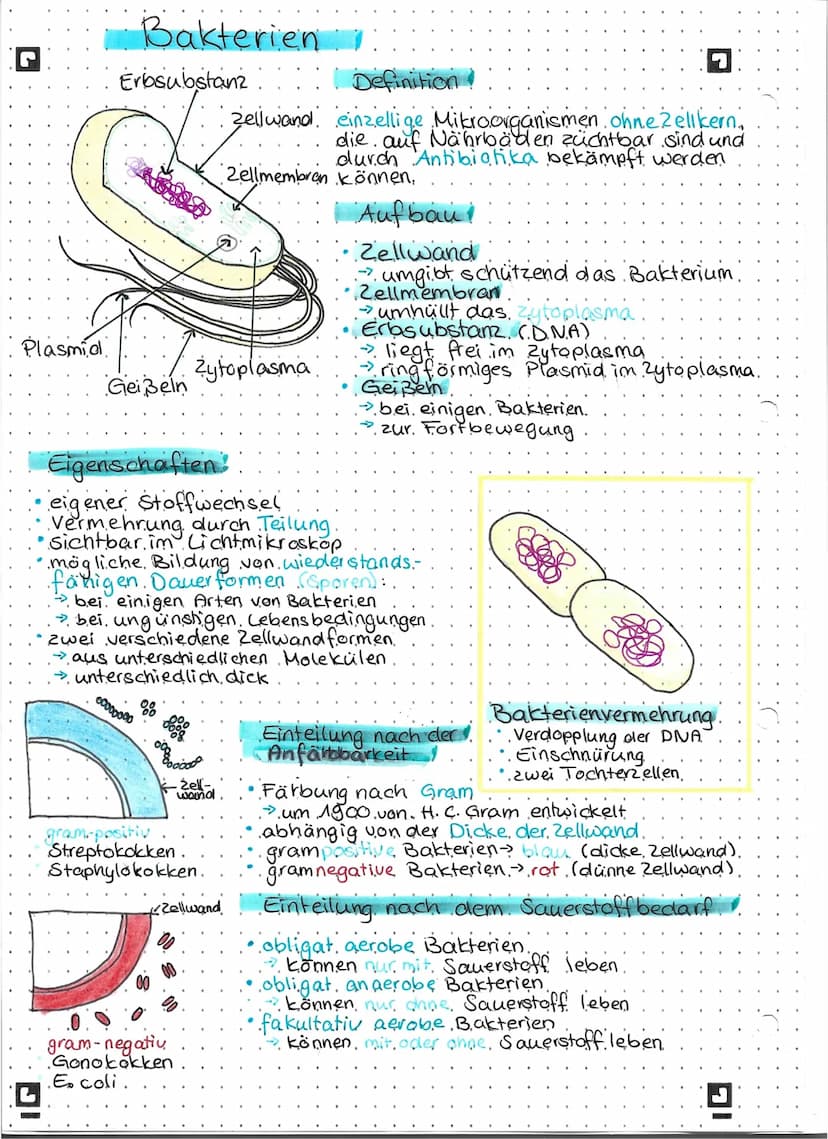 Bakterien
Erbsubstanz
Zellwand
Zellmembran
Plasmid
Geißeln
Zytoplasma
Definition
einzellige Mikroorganismen ohne Zellkern,
die auf Nährböden züchtbar sind und
durch Antibiotika bekämpft werden
können.
Aufbau
• Zellwand
→ umgibt schützend das Bakterium
• Zellmembran
→ umhüllt das Zytoplasma
• Erbsubstanz (DNA)
→ liegt frei im Zytoplasma
→ ringförmiges Plasmid im Zytoplasma
• Geißeln
→ bei einigen Bakterien
→ zur Fortbewegung
Eigenschaften
• eigener Stoffwechsel
• Vermehrung durch Teilung
• Sichtbar im Lichtmikroskop
• mögliche Bildung von wiederstands-
fähigen Dauerformen (Sporen):
→ bei einigen Arten von Bakterien
→ bei ungünstigen Lebensbedingungen
• zwei verschiedene Zellwandformen
→ aus unterschiedlichen Molekülen
→ unterschiedlich dick
Bakterienvermehrung
• Verdopplung der DNA
• Einschnürung
• zwei Tochterzellen
Zell-
wand
gram-positiv
Streptokokken
Staphylokokken
Einteilung nach der
Anfärbbarkeit
• Färbung nach Gram
→ um 1900 von H. C. Gram entwickelt
• abhängig von der Dicke der Zellwand
• grampositive Bakterien → blau (dicke Zellwand)
• gramnegative Bakterien → rot (dünne Zellwand)
Zellwand
gram-negativ
Gonokokken
E. coli
Einteilung nach dem Sauerstoffbedarf
• obligat aerobe Bakterien
→ können nur mit Sauerstoff leben
• obligat anaerobe Bakterien
→ können nur ohne Sauerstoff leben
• fakultativ aerobe Bakterien
→ können mit oder ohne Sauerstoff leben